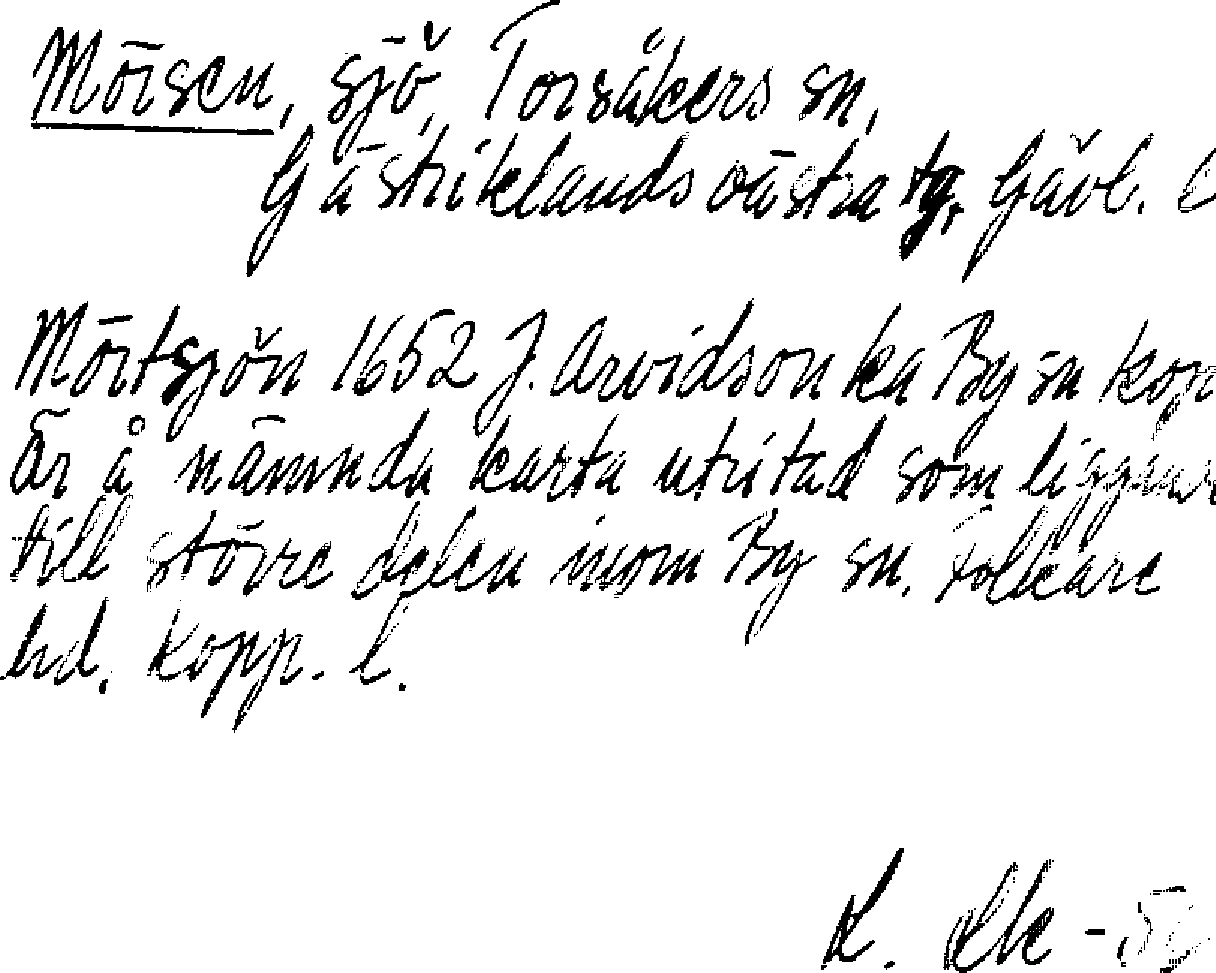 Mörsen, sjö, Torsåkers sn,
Gästriklands västra tg, Gävl.
Mörtsjön 1652 J. Arvidson ka By sn kop
Är å nämnda karta utritad som ligger
till större delen inom By sn. Folkare
hd. Kopp. l.